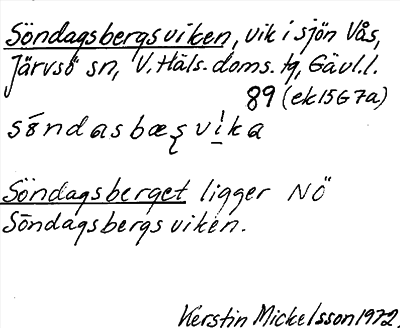 Söndagsbergsviken, vik i sjön Vås,
Järvsö sn, V. Häls. doms. tg, Gävl. l.
89 (ek 15G7a)
Söndagsberget ligger NÖ
Söndagsbergsviken.
Kerstin Mickelsson 1972.